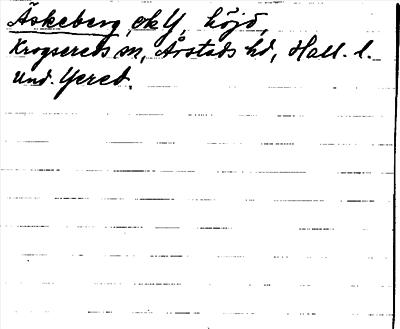 Äskeberg, ek Y, höjd,
Krogsereds sn, Årstads hd, Hall. l.
und. Yered.